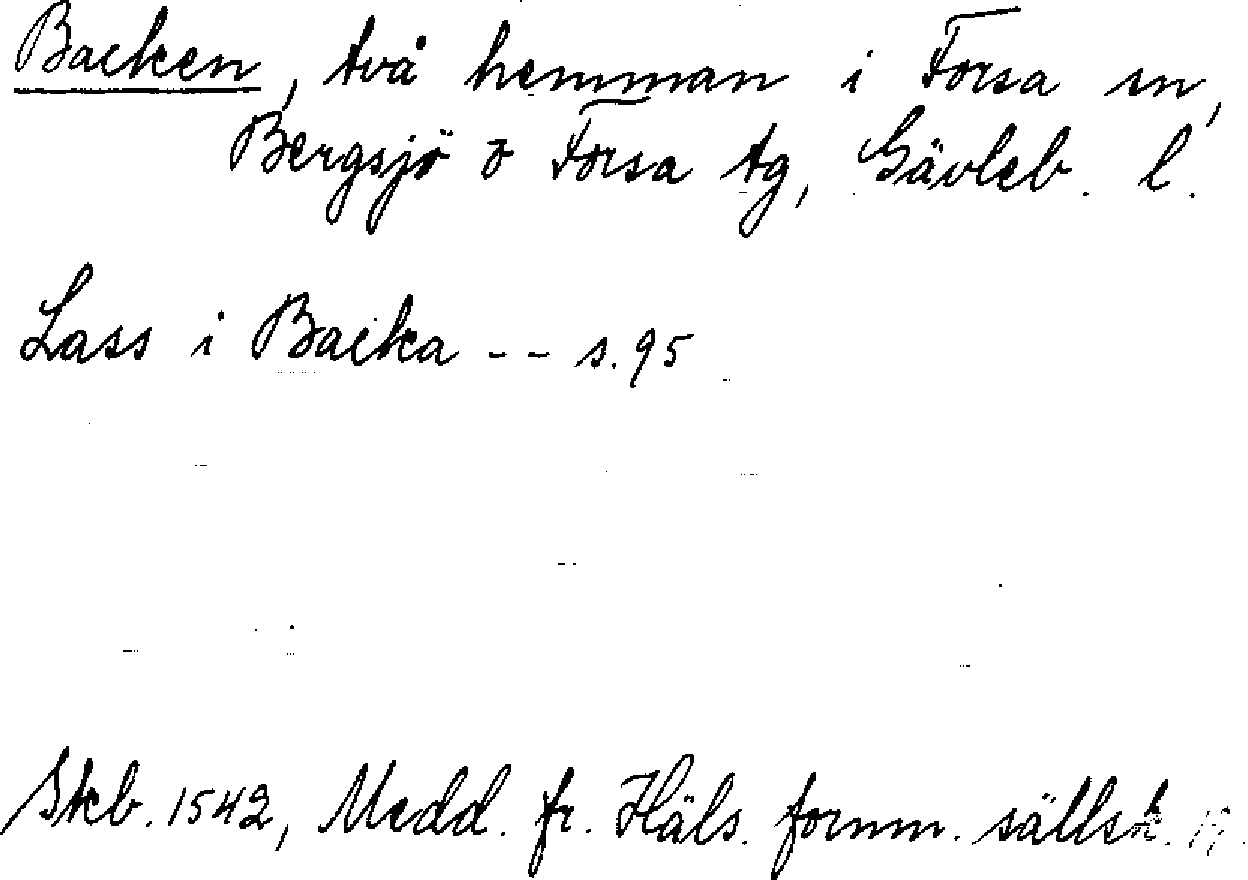 Backen, två hemman i Forsa sn,
Bergsjö o Forsa tg, Gävleb. l.
Lass i Backa -- s. 95
Skb. 1542, Medd. fr. Häls. fornm. sällsk.